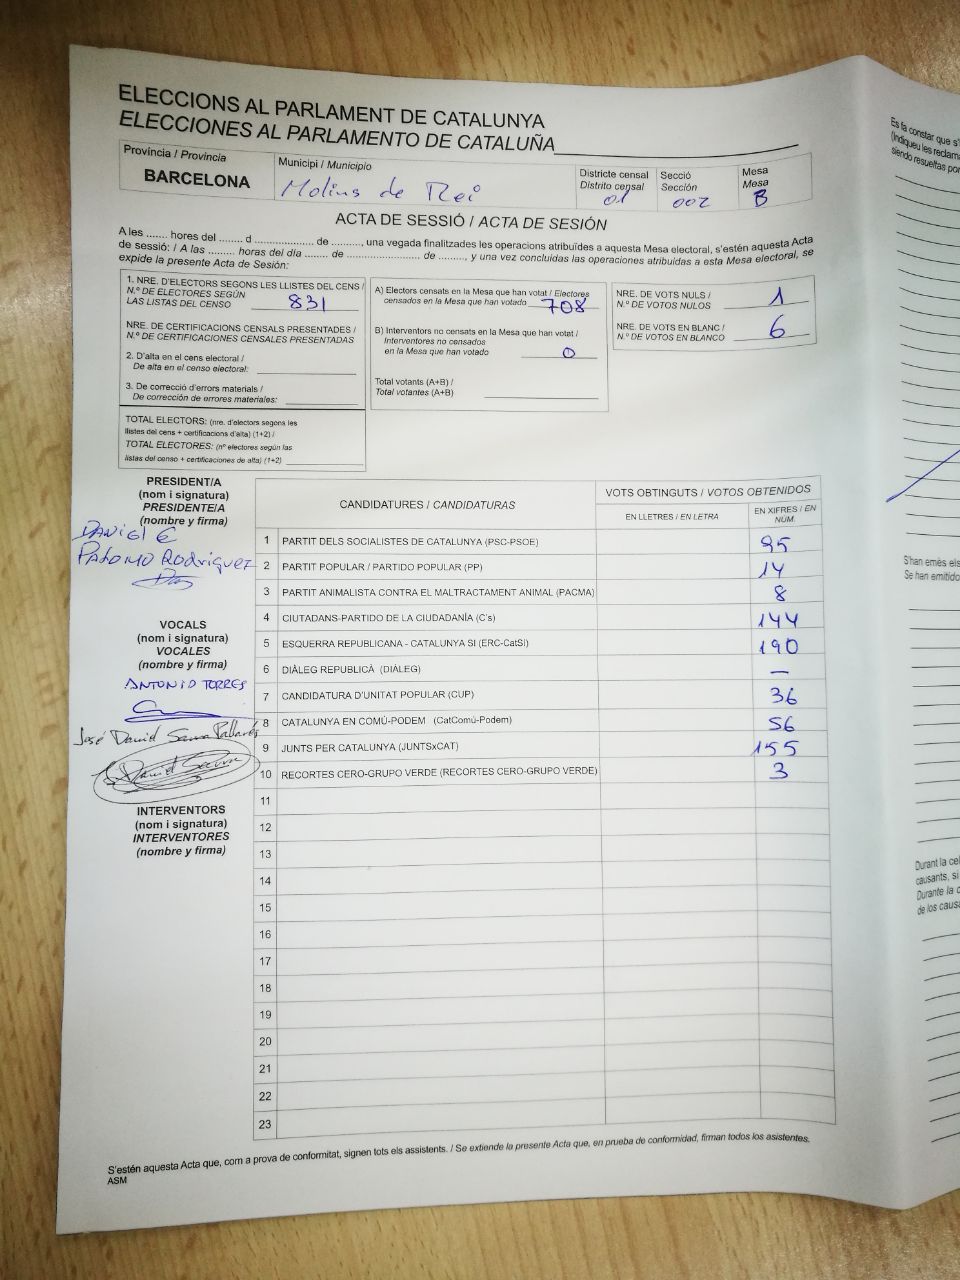 ELECCIONS AL PARLAMENT DE CATALUNYA
ELECCIONES AL PARLAMENTO DE CATALUÑA
Província / Provincia
BARCELONA
Municipi / Municipio
Molins de Rei
Districte censal
Distrito censal
01
Secció
Sección
002
Mesa
Mesa
B
ACTA DE SESSIÓ / ACTA DE SESIÓN
A les ....... hores del ........ d .................... de .........., una vegada finalitzades les operacions atribuïdes a aquesta Mesa electoral, s'estén aquesta Acta
de sessió: / A las ......... horas del día ....... de ............................. de ........., y una vez concluidas las operaciones atribuidas a esta Mesa electoral, se
expide la presente Acta de Sesión:
1. NRE. D'ELECTORS SEGONS LES LLISTES DEL CENS /
N.º DE ELECTORES SEGÚN
LAS LISTAS DEL CENSO 831
NRE. DE CERTIFICACIONS CENSALS PRESENTADES /
N.º DE CERTIFICACIONES CENSALES PRESENTADAS
2. D'alta en el cens electoral /
De alta en el censo electoral:
3. De correcció d'errors materials /
De corrección de errores materiales:
TOTAL ELECTORS: (nre. d'electors segons les
llistes del cens + certificacions d'alta) (1+2) /
TOTAL ELECTORES: (nº electores según las
listas del censo + certificaciones de alta) (1+2)
A) Electors censats en la Mesa que han votat / Electores
censados en la Mesa que han votado 708
B) Interventors no censats en la Mesa que han votat /
Interventores no censados
en la Mesa que han votado 0
Total votants (A+B) /
Total votantes (A+B)
NRE. DE VOTS NULS /
N.º DE VOTOS NULOS 1
NRE. DE VOTS EN BLANC /
N.º DE VOTOS EN BLANCO 6
PRESIDENT/A
(nom i signatura)
PRESIDENTE/A
(nombre y firma)
DANIEL
PALOMO Rodríguez
VOCALS
(nom i signatura)
VOCALES
(nombre y firma)
ANTONIO TORRES
José David Serra Pallarés
INTERVENTORS
(nom i signatura)
INTERVENTORES
(nombre y firma)
CANDIDATURES / CANDIDATURAS
VOTS OBTINGUTS / VOTOS OBTENIDOS
EN LLETRES / EN LETRA
EN XIFRES / EN
NÚM.
1 PARTIT DELS SOCIALISTES DE CATALUNYA (PSC-PSOE) 95
2 PARTIT POPULAR / PARTIDO POPULAR (PP) 14
3 PARTIT ANIMALISTA CONTRA EL MALTRACTAMENT ANIMAL (PACMA) 8
4 CIUTADANS-PARTIDO DE LA CIUDADANÍA (C's) 144
5 ESQUERRA REPUBLICANA - CATALUNYA SI (ERC-CatSí) 190
6 DIÀLEG REPUBLICÀ (DIÀLEG) —
7 CANDIDATURA D'UNITAT POPULAR (CUP) 36
8 CATALUNYA EN COMÚ-PODEM (CatComú-Podem) 56
9 JUNTS PER CATALUNYA (JUNTSxCAT) 155
10 RECORTES CERO-GRUPO VERDE (RECORTES CERO-GRUPO VERDE) 3
11
12
13
14
15
16
17
18
19
20
21
22
23
S'estén aquesta Acta que, com a prova de conformitat, signen tots els assistents. / Se extiende la presente Acta que, en prueba de conformidad, firman todos los asistentes.
ASM
Es fa constar que s'
(indiqueu les reclama
siendo resueltas por
S'han emès els
Se han emitido
Durant la cel
causants, si
Durante la c
de los causa